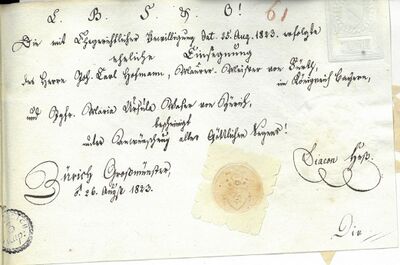 L. B. S. & G! 61
Die mit Ehegerichtlicher Bewilligung dat. 25. Aug. 1823. erfolgte
eheliche Einsegnung
des Herrn Joh. Carl Hofmann, Maurer-Meister von Fürth,
im Königreich Bayern,
und Jgfr. Maria Ursula Maser von Zürich,
bescheinigt
unter Anwünschung alles Göttlichen Segens!
Zürich Großmünster,
d. 26. Augst. 1823.
Diacon Heß.
Die